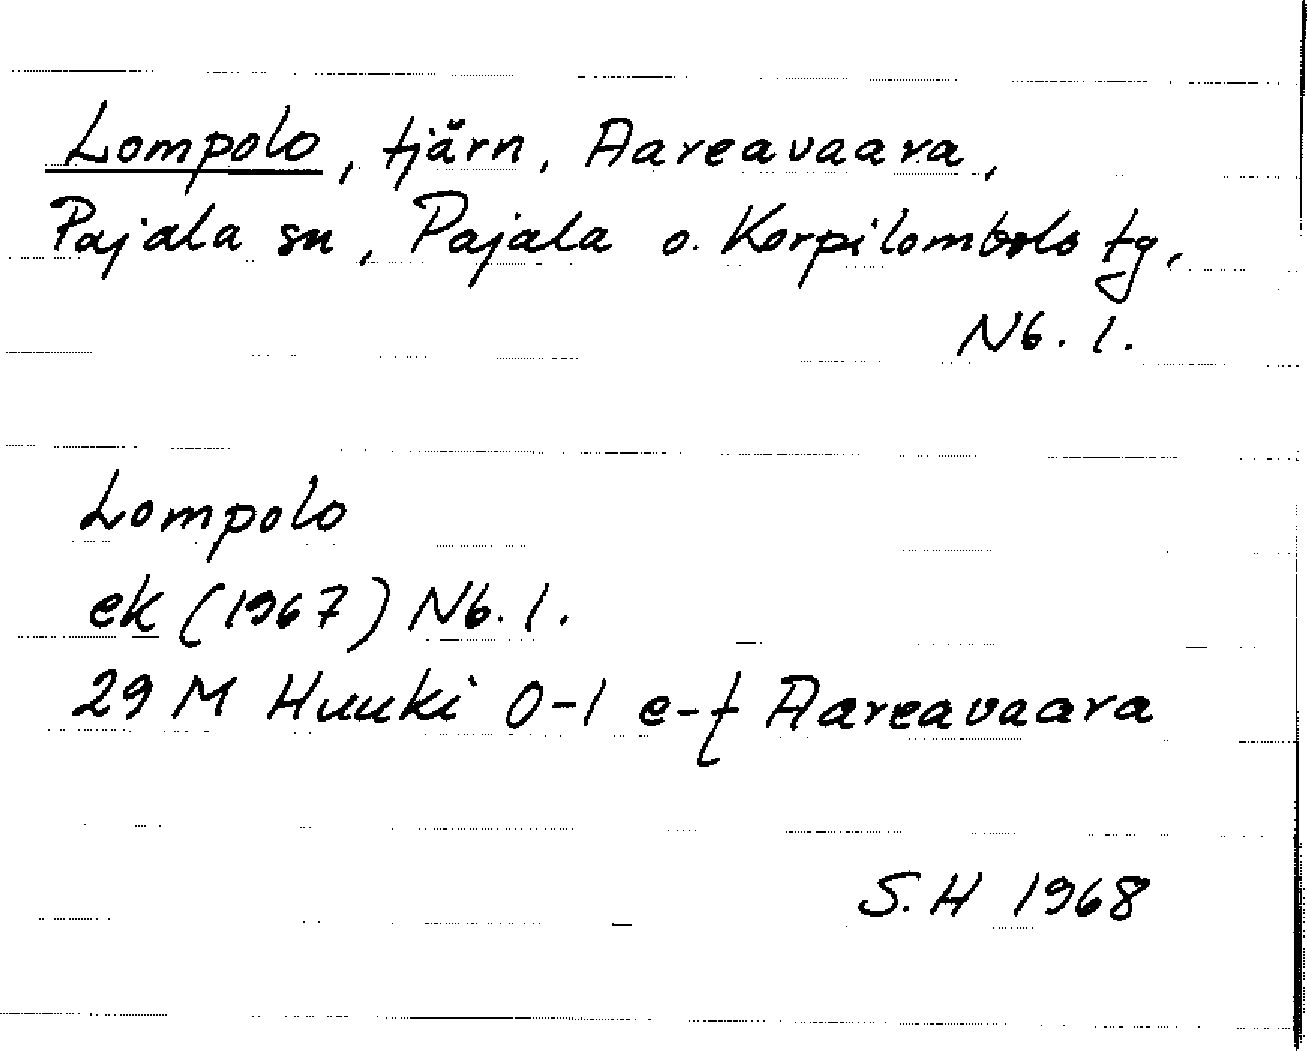 Lompolo, tjärn, Aareavaara,
Pajala sn, Pajala o. Korpilombolo tg,
Nb. l.
Lompolo
ek (1967) Nb. l.
29 M Huuki 0-1 e-f Aareavaara
S.H 1968